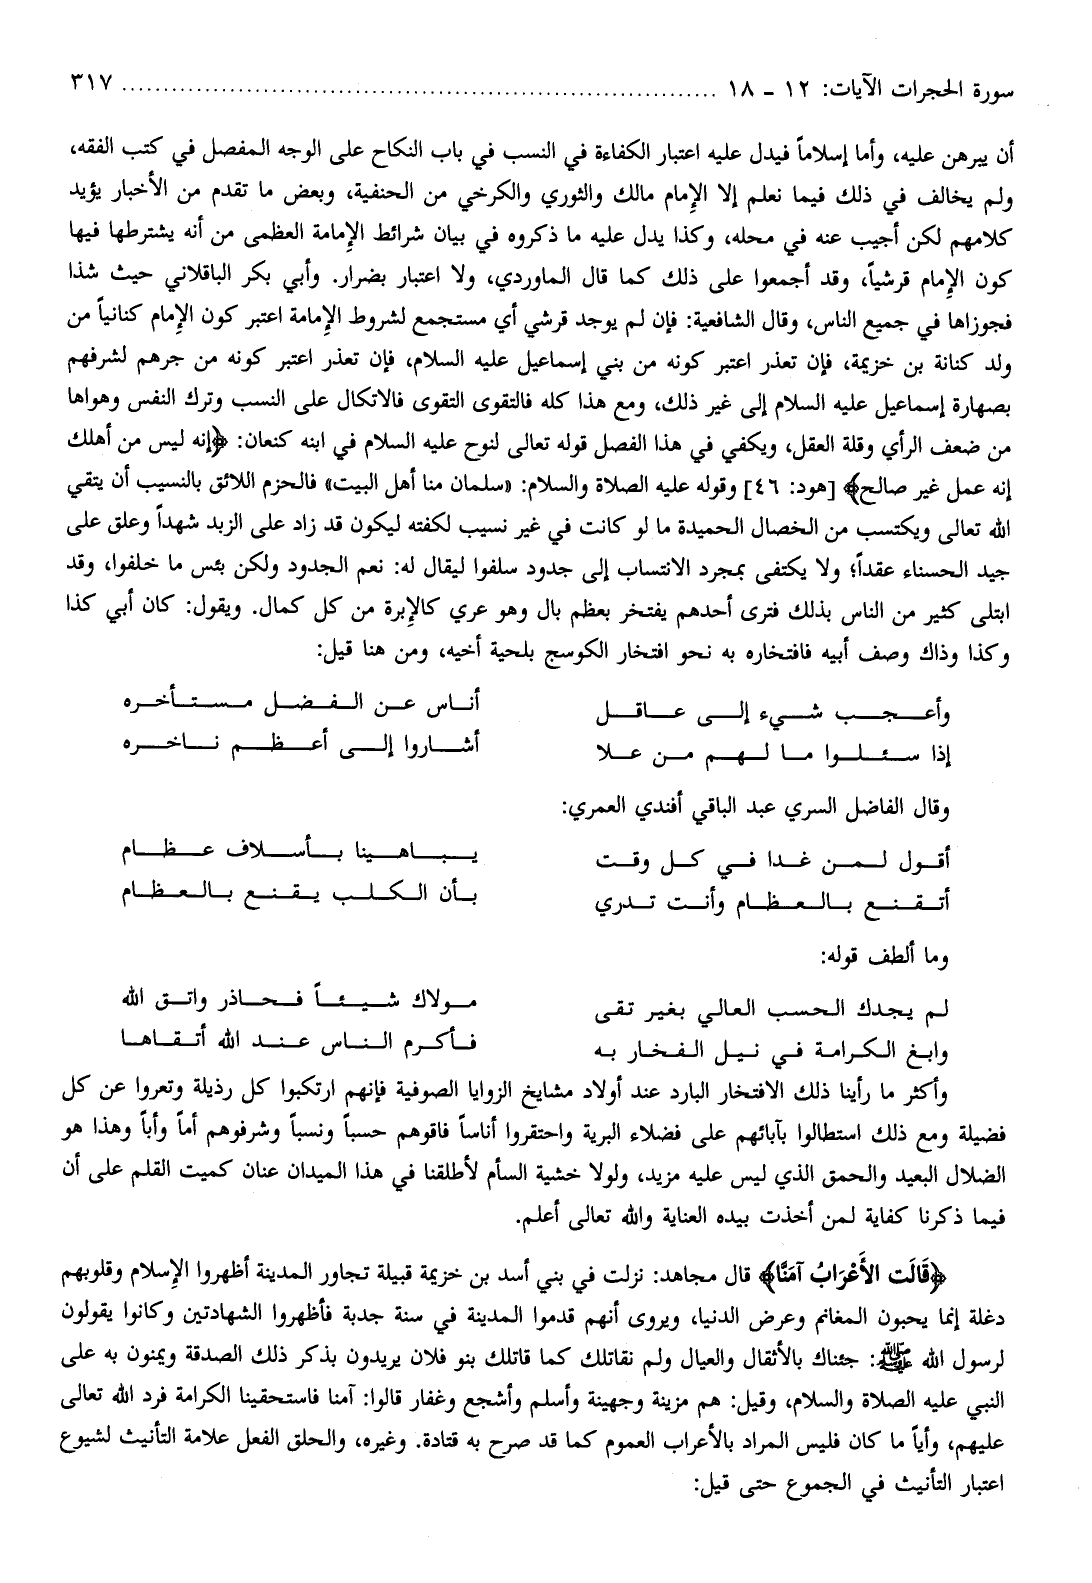 سورة الحجرات الآيات: ١٢ - ١٨ ........................................................................ ٣١٧
أن يبرهن عليه، وأما إسلاماً فيدل عليه اعتبار الكفاءة في النسب في باب النكاح على الوجه المفصل في كتب الفقه،
ولم يخالف في ذلك فيما نعلم إلا الإمام مالك والثوري والكرخي من الحنفية، وبعض ما تقدم من الأخبار يؤيد
كلامهم لكن أجيب عنه في محله، وكذا يدل عليه ما ذكروه في بيان شرائط الإمامة العظمى من أنه يشترطها فيها
كون الإمام قرشياً، وقد أجمعوا على ذلك كما قال الماوردي، ولا اعتبار بضرار. وأبي بكر الباقلاني حيث شذا
فجوزاها في جميع الناس، وقال الشافعية: فإن لم يوجد قرشي أي مستجمع لشروط الإمامة اعتبر كون الإمام كنانياً من
ولد كنانة بن خزيمة، فإن تعذر اعتبر كونه من بني إسماعيل عليه السلام، فإن تعذر اعتبر كونه من جرهم لشرفهم
بصهارة إسماعيل عليه السلام إلى غير ذلك، ومع هذا كله فالتقوى التقوى فالاتكال على النسب وترك النفس وهواها
من ضعف الرأي وقلة العقل، ويكفي في هذا الفصل قوله تعالى لنوح عليه السلام في ابنه كنعان: ﴿إنه ليس من أهلك
إنه عمل غير صالح﴾ [هود: ٤٦] وقوله عليه الصلاة والسلام: «سلمان منا أهل البيت» فالحزم اللائق بالنسيب أن يتقي
الله تعالى ويكتسب من الخصال الحميدة ما لو كانت في غير نسيب لكفته ليكون قد زاد على الزبد شهداً وعلق على
جيد الحسناء عقداً؛ ولا يكتفى بمجرد الانتساب إلى جدود سلفوا ليقال له: نعم الجدود ولكن بئس ما خلفوا، وقد
ابتلى كثير من الناس بذلك فترى أحدهم يفتخر بعظم بال وهو عري كالإبرة من كل كمال. ويقول: كان أبي كذا
وكذا وذاك وصف أبيه فافتخاره به نحو افتخار الكوسج بلحية أخيه، ومن هنا قيل:
وأعجب شيء إلى عاقل أناس عن الفضل مستأخره
إذا سئلوا ما لهم من علا أشاروا إلى أعظم ناخره
وقال الفاضل السري عبد الباقي أفندي العمري:
أقول لمن غدا في كل وقت يباهينا بأسلاف عظام
أتقنع بالعظام وأنت تدري بأن الكلب يقنع بالعظام
وما ألطف قوله:
لم يجدك الحسب العالي بغير تقى مولاك شيئاً فحاذر واتق الله
وابغ الكرامة في نيل الفخار به فأكرم الناس عند الله أتقاها
وأكثر ما رأينا ذلك الافتخار البارد عند أولاد مشايخ الزوايا الصوفية فإنهم ارتكبوا كل رذيلة وتعروا عن كل
فضيلة ومع ذلك استطالوا بآبائهم على فضلاء البرية واحتقروا أناساً فاقوهم حسباً ونسباً وشرفوهم أماً وأباً وهذا هو
الضلال البعيد والحمق الذي ليس عليه مزيد، ولولا خشية السأم لأطلقنا في هذا الميدان عنان كميت القلم على أن
فيما ذكرنا كفاية لمن أخذت بيده العناية والله تعالى أعلم.
﴿قَالَت الأَعْرَابُ آمَنَّا﴾ قال مجاهد: نزلت في بني أسد بن خزيمة قبيلة تجاور المدينة أظهروا الإسلام وقلوبهم
دغلة إنما يحبون المغانم وعرض الدنيا، ويروى أنهم قدموا المدينة في سنة جدبة فأظهروا الشهادتين وكانوا يقولون
لرسول الله ﷺ: جئناك بالأثقال والعيال ولم نقاتلك كما قاتلك بنو فلان يريدون بذكر ذلك الصدقة ويمنون به على
النبي عليه الصلاة والسلام، وقيل: هم مزينة وجهينة وأسلم وأشجع وغفار قالوا: آمنا فاستحقينا الكرامة فرد الله تعالى
عليهم، وأياً ما كان فليس المراد بالأعراب العموم كما قد صرح به قتادة. وغيره، والحلق الفعل علامة التأنيث لشيوع
اعتبار التأنيث في الجموع حتى قيل: